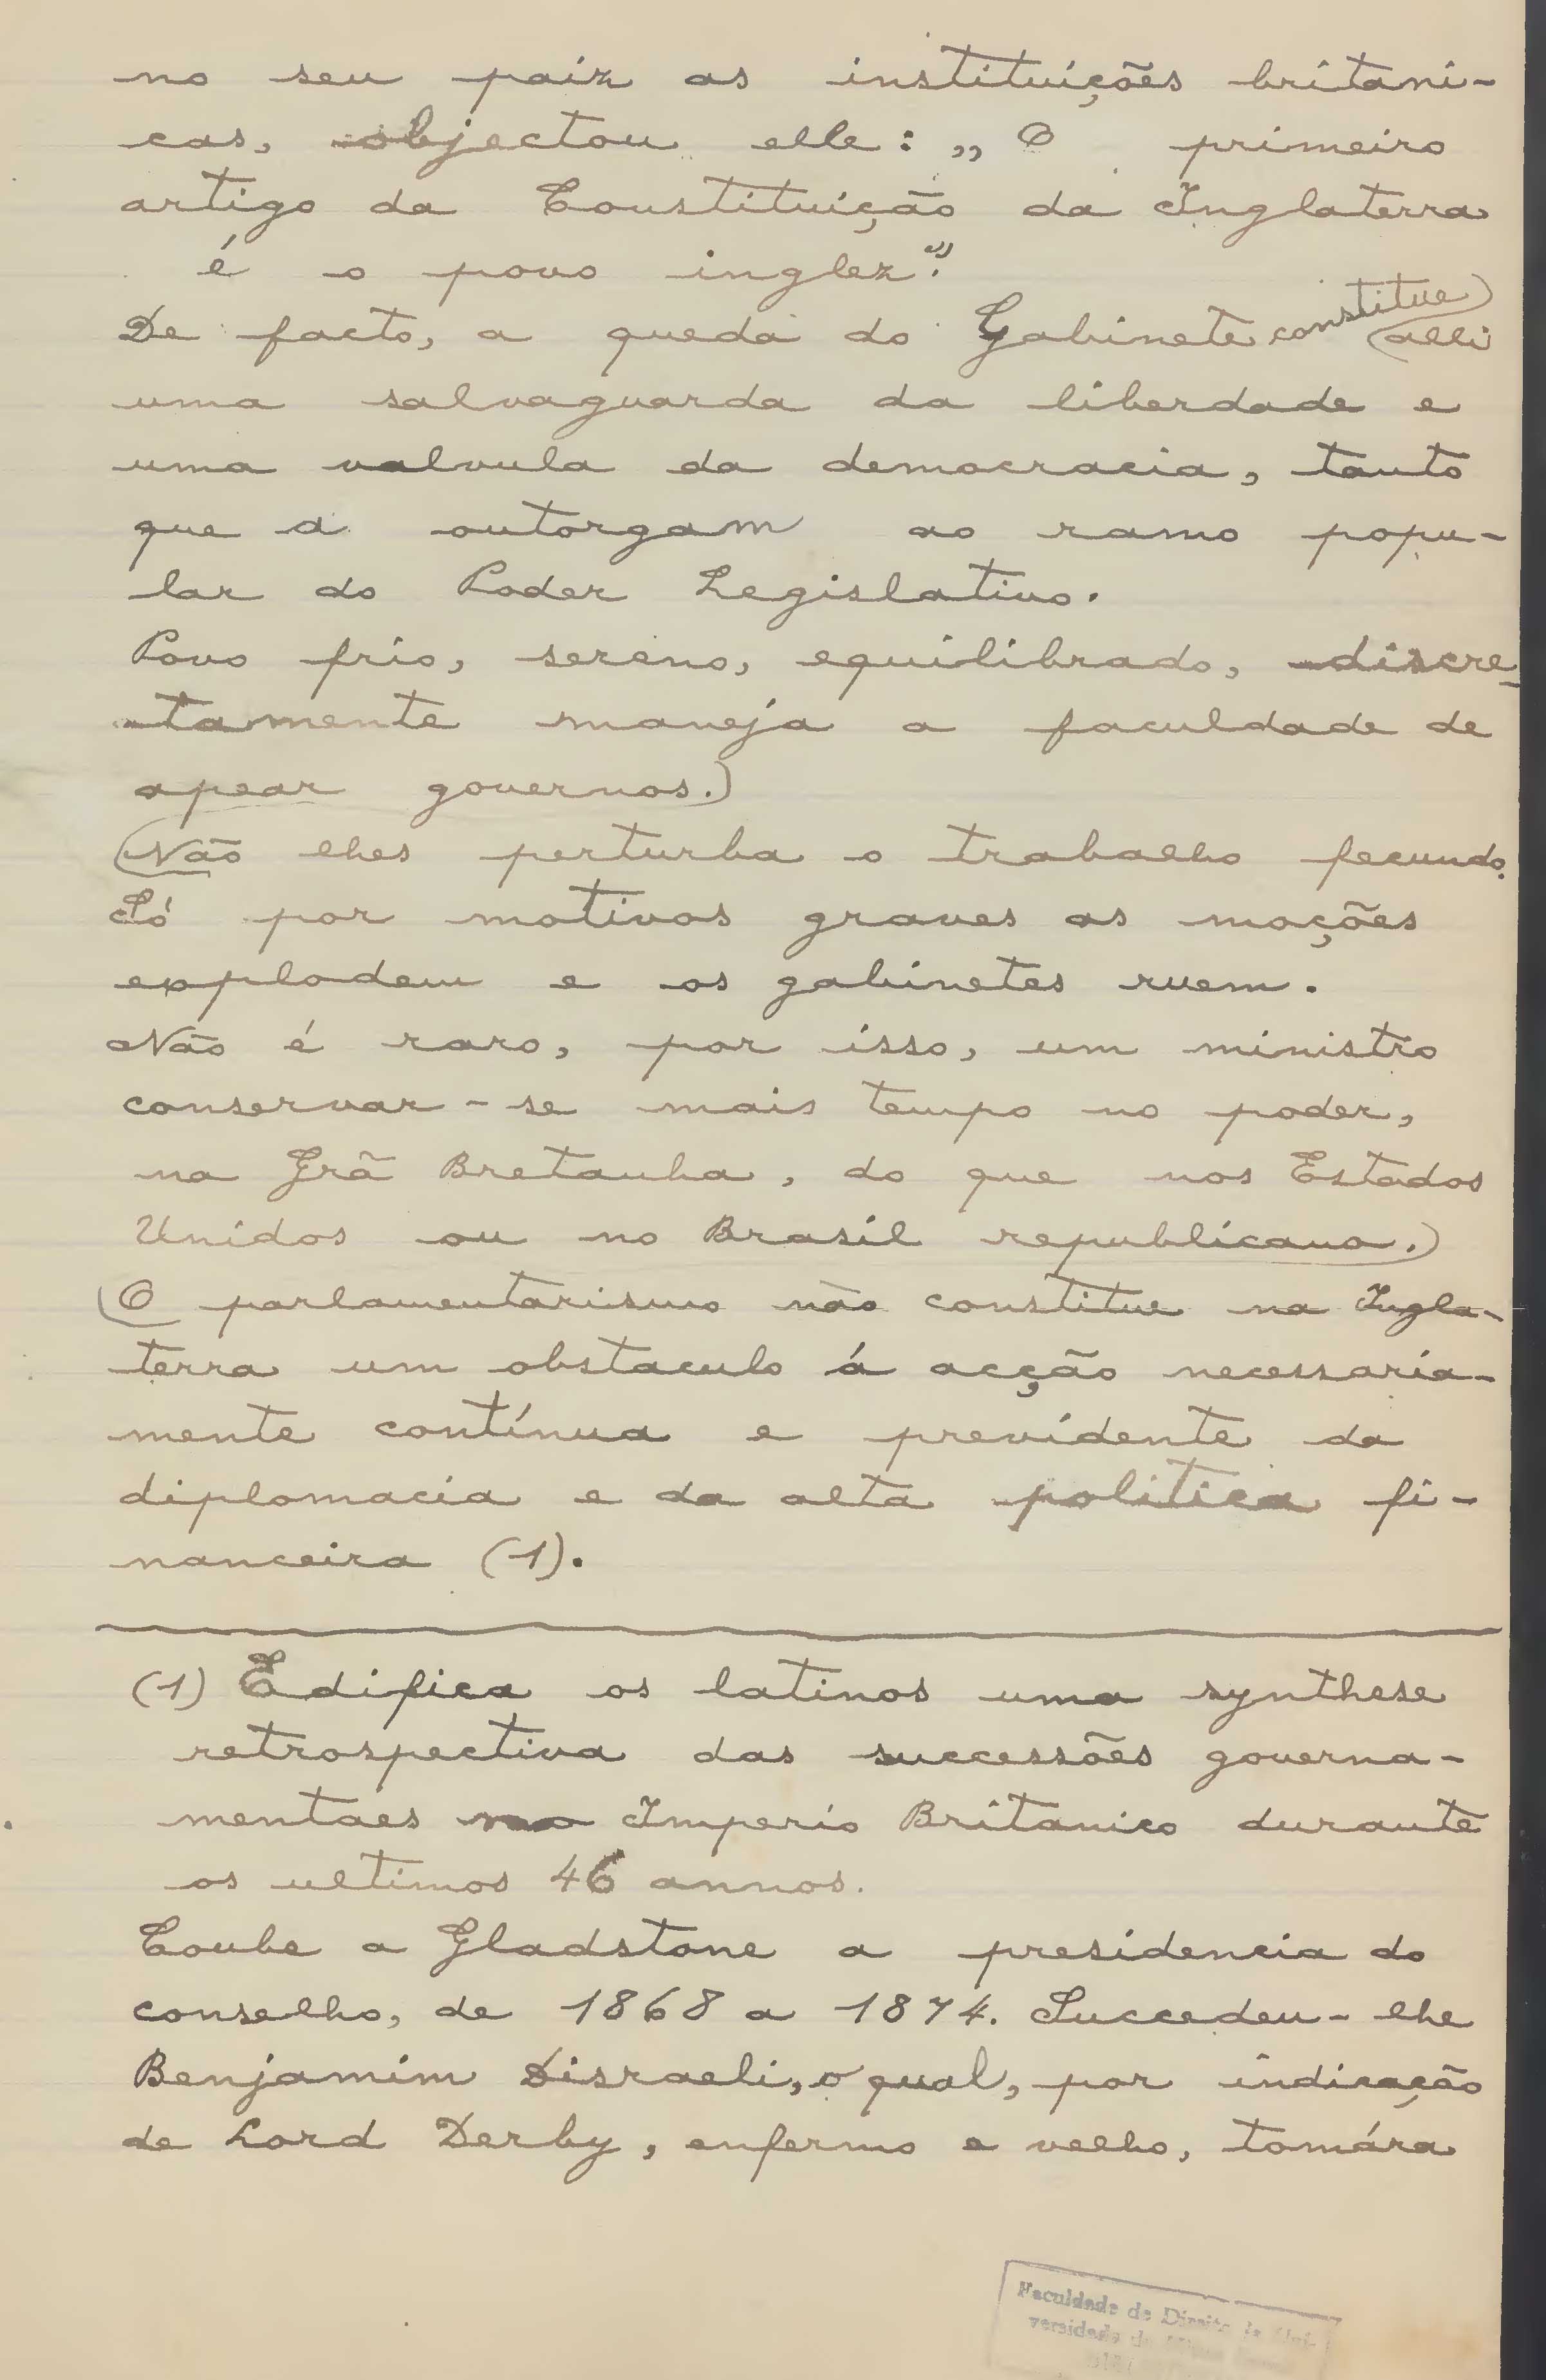 no seu paiz as instituições britani-
cas, objectou elle: „ O primeiro
artigo da Constituição da Inglaterra
é o povo inglez".
De facto, a queda do Gabinete constitue
alli
uma salvaguarda da liberdade e
uma valvula da democracia, tanto
que a outorgam ao ramo popu-
lar do Poder Legislativo.
Povo frio, sereno, equilibrado, discre-
tamente maneja a faculdade de
apear governos.)
(Não lhes perturba o trabalho fecundo.
Só por motivos graves as moções
explodem e os gabinetes ruem.
Não é raro, por isso, um ministro
conservar-se mais tempo no poder,
na Grã Bretanha, do que nos Estados
Unidos ou no Brasil republicano.)
(O parlamentarismo não constitue na Ingla-
terra um obstaculo á acção necessaria-
mente contínua e previdente da
diplomacia e da alta politica fi-
nanceira (1).
(1) Edifica os latinos uma synthese
retrospectiva das successões governa-
mentaes no Imperio Britanico durante
os ultimos 46 annos.
Coube a Gladstone a presidencia do
conselho, de 1868 a 1874. Succedeu-lhe
Benjamim Disraeli, o qual, por indicação
de Lord Derby, enfermo e velho, tomára
Faculdade de Direito da Uni-
versidade de